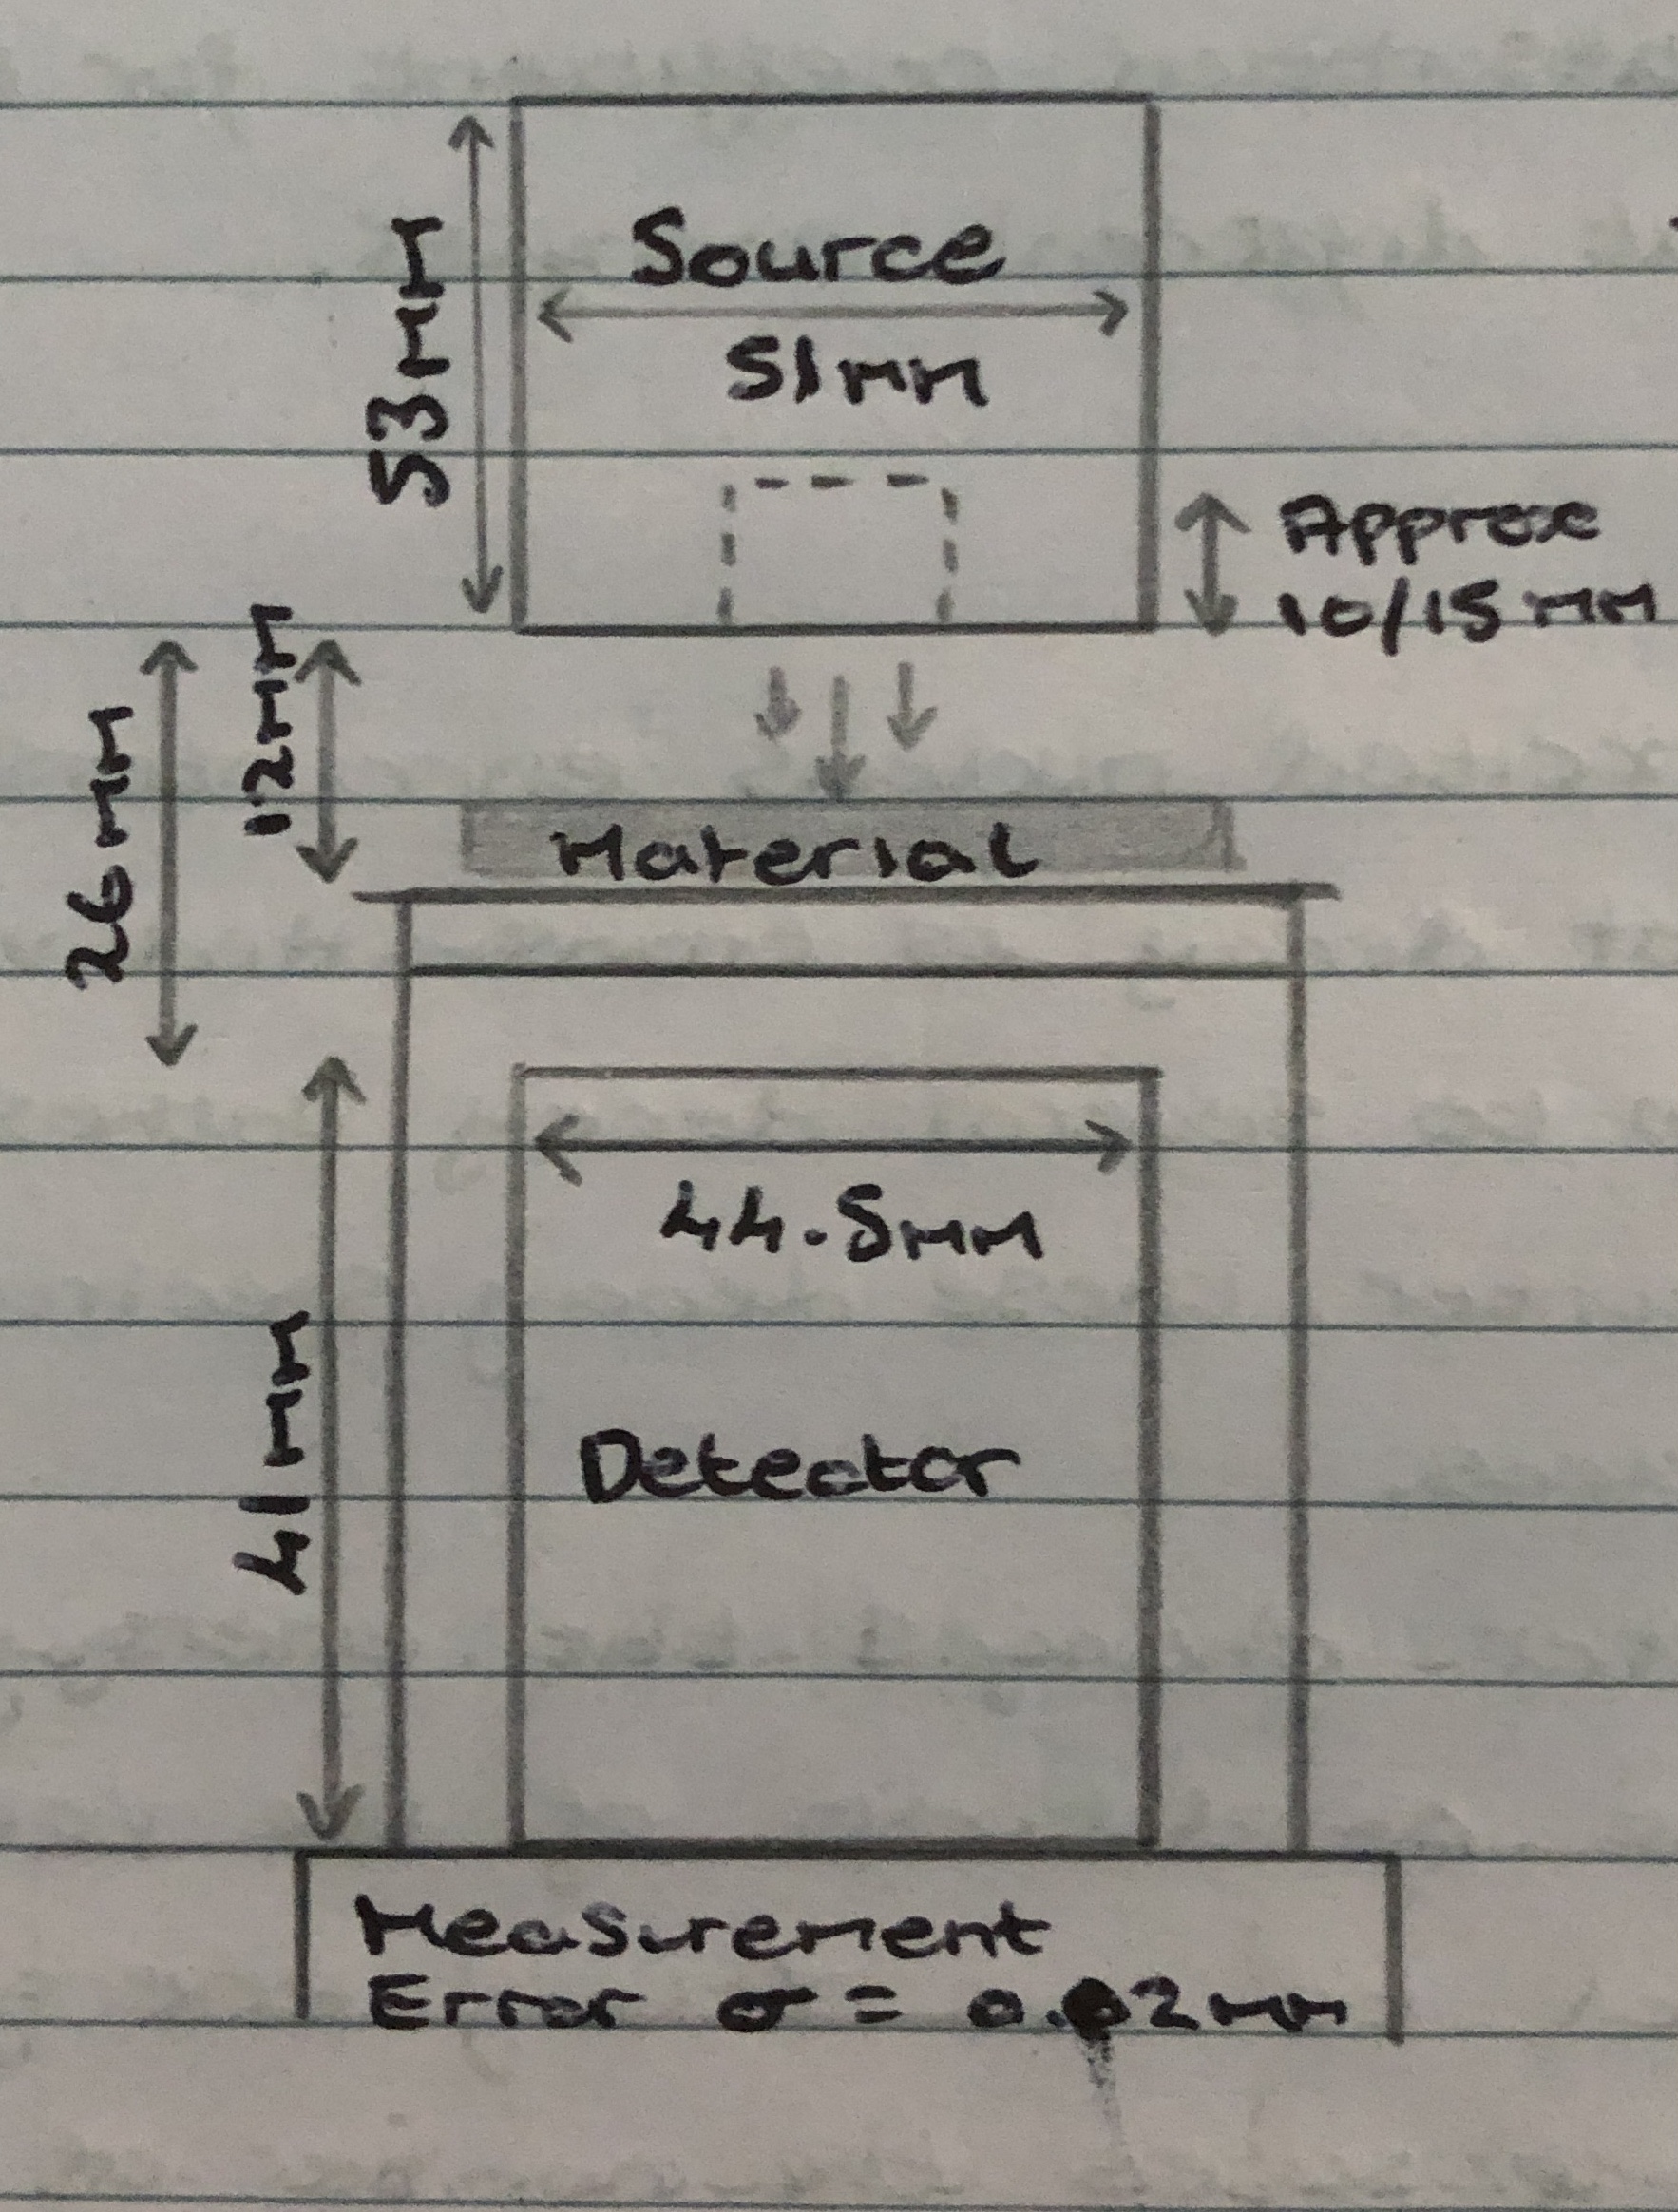 Source
51mm
53mm
Approx
10/15mm
12mm
26mm
Material
44.5mm
41mm
Detector
Measurement
Error σ = 0.02mm